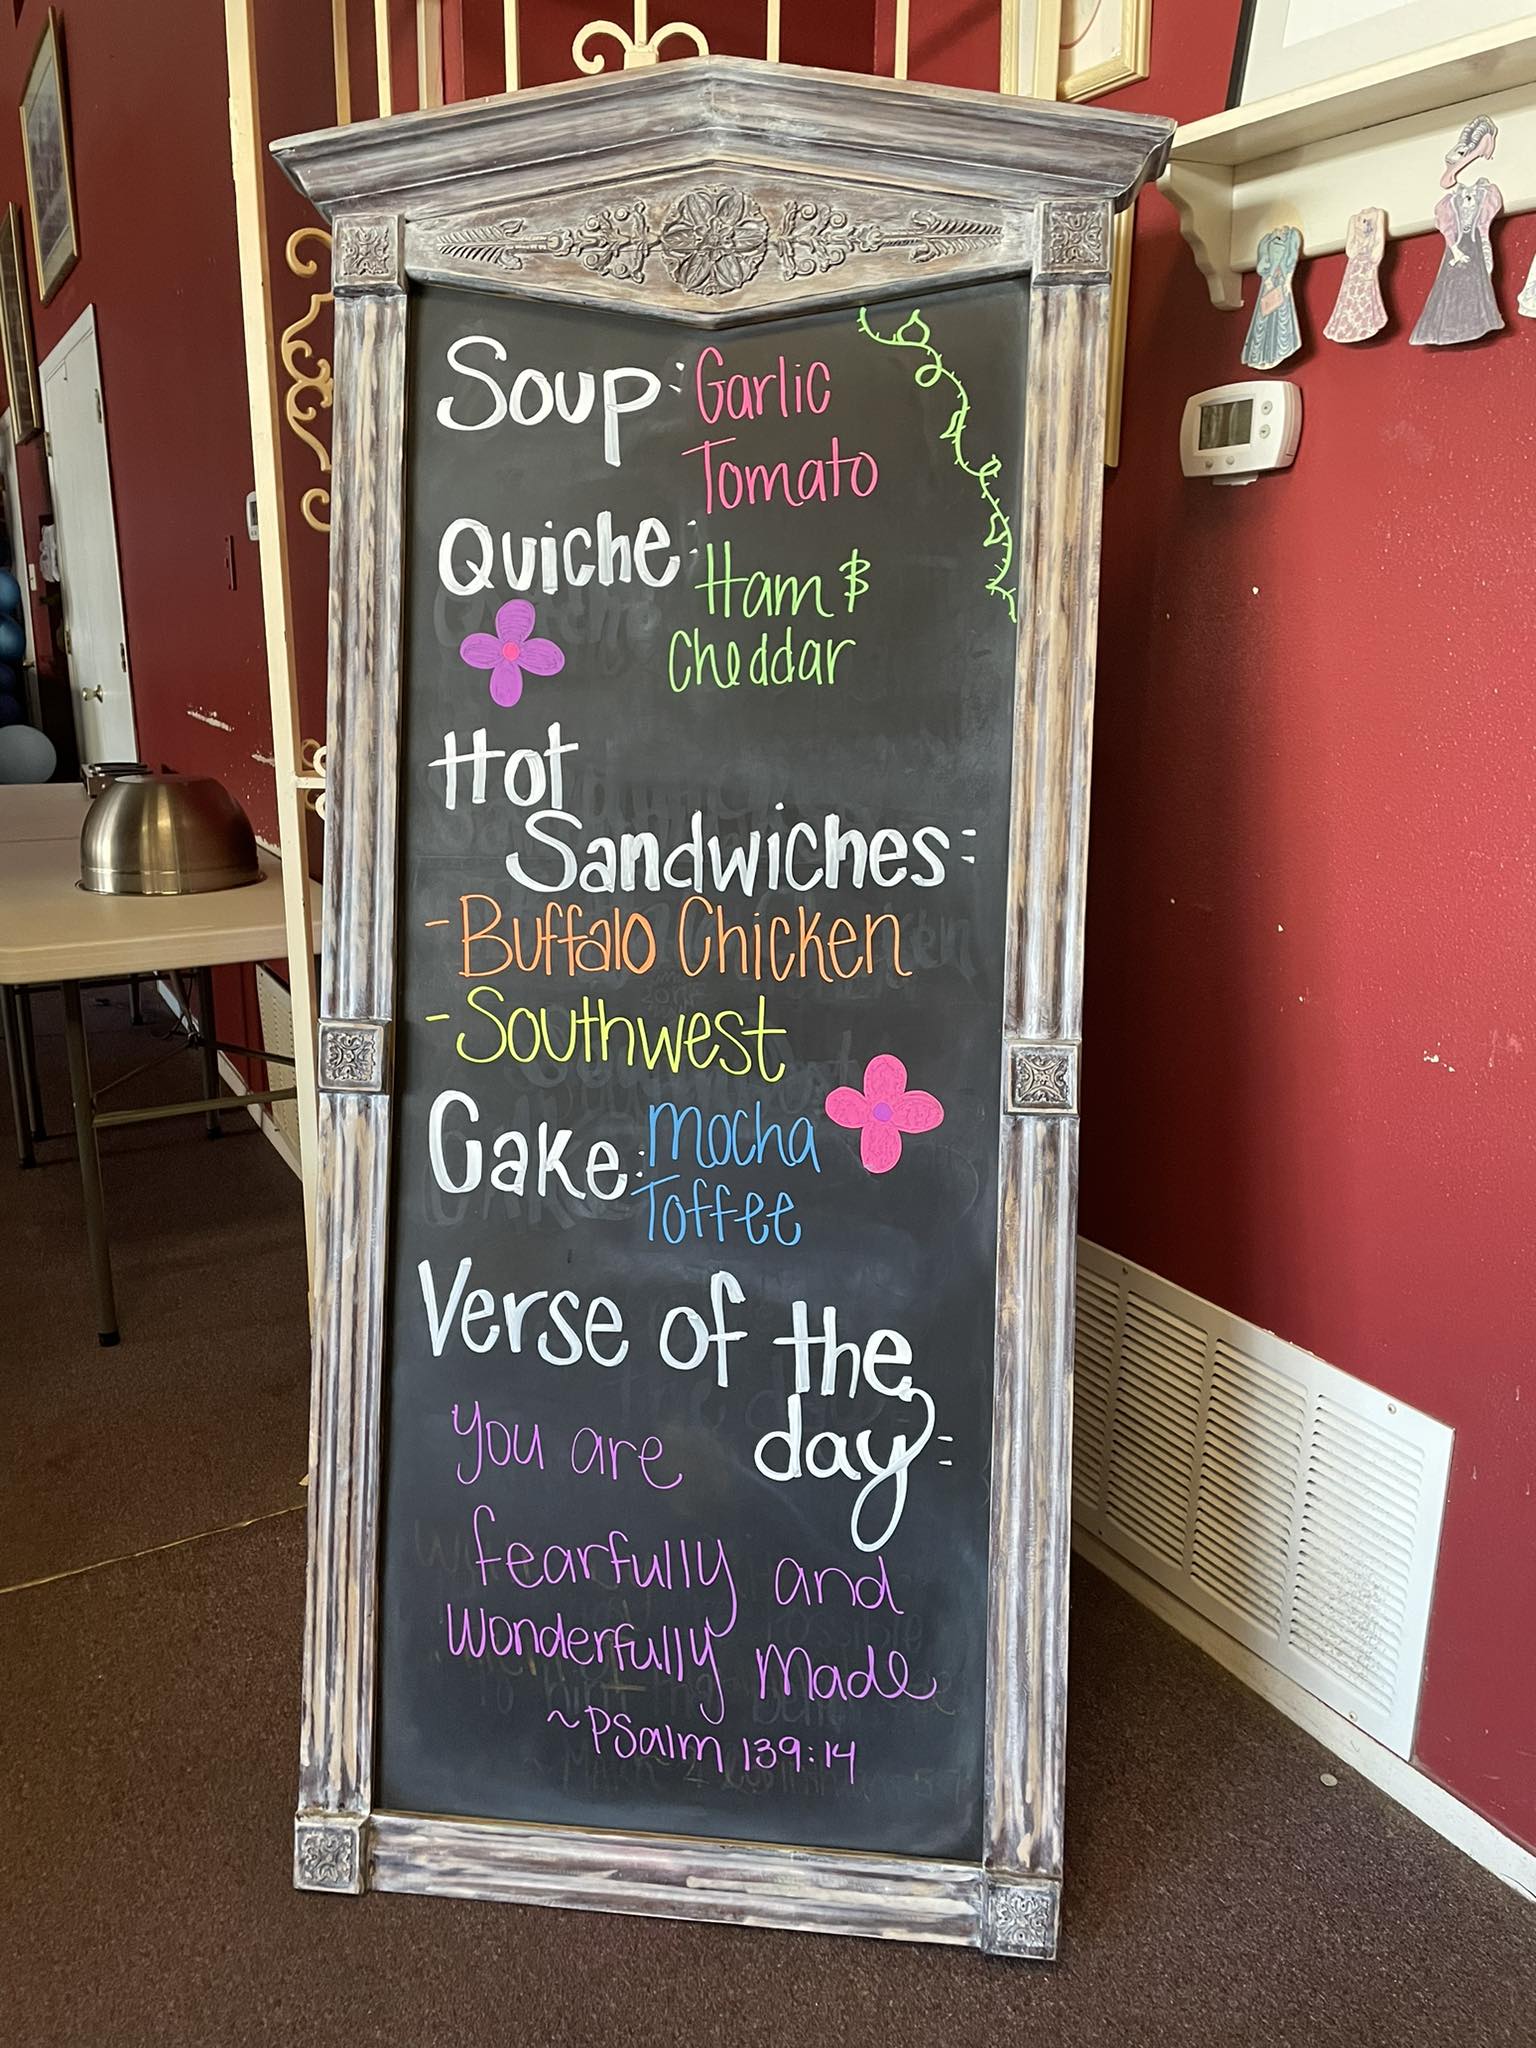 Soup: Garlic
Tomato
Quiche: Ham &
Cheddar
Hot
Sandwiches:
- Buffalo Chicken
- Southwest
Cake: Mocha
Toffee
Verse of the
day:
you are
fearfully and
wonderfully made
~ Psalm 139:14